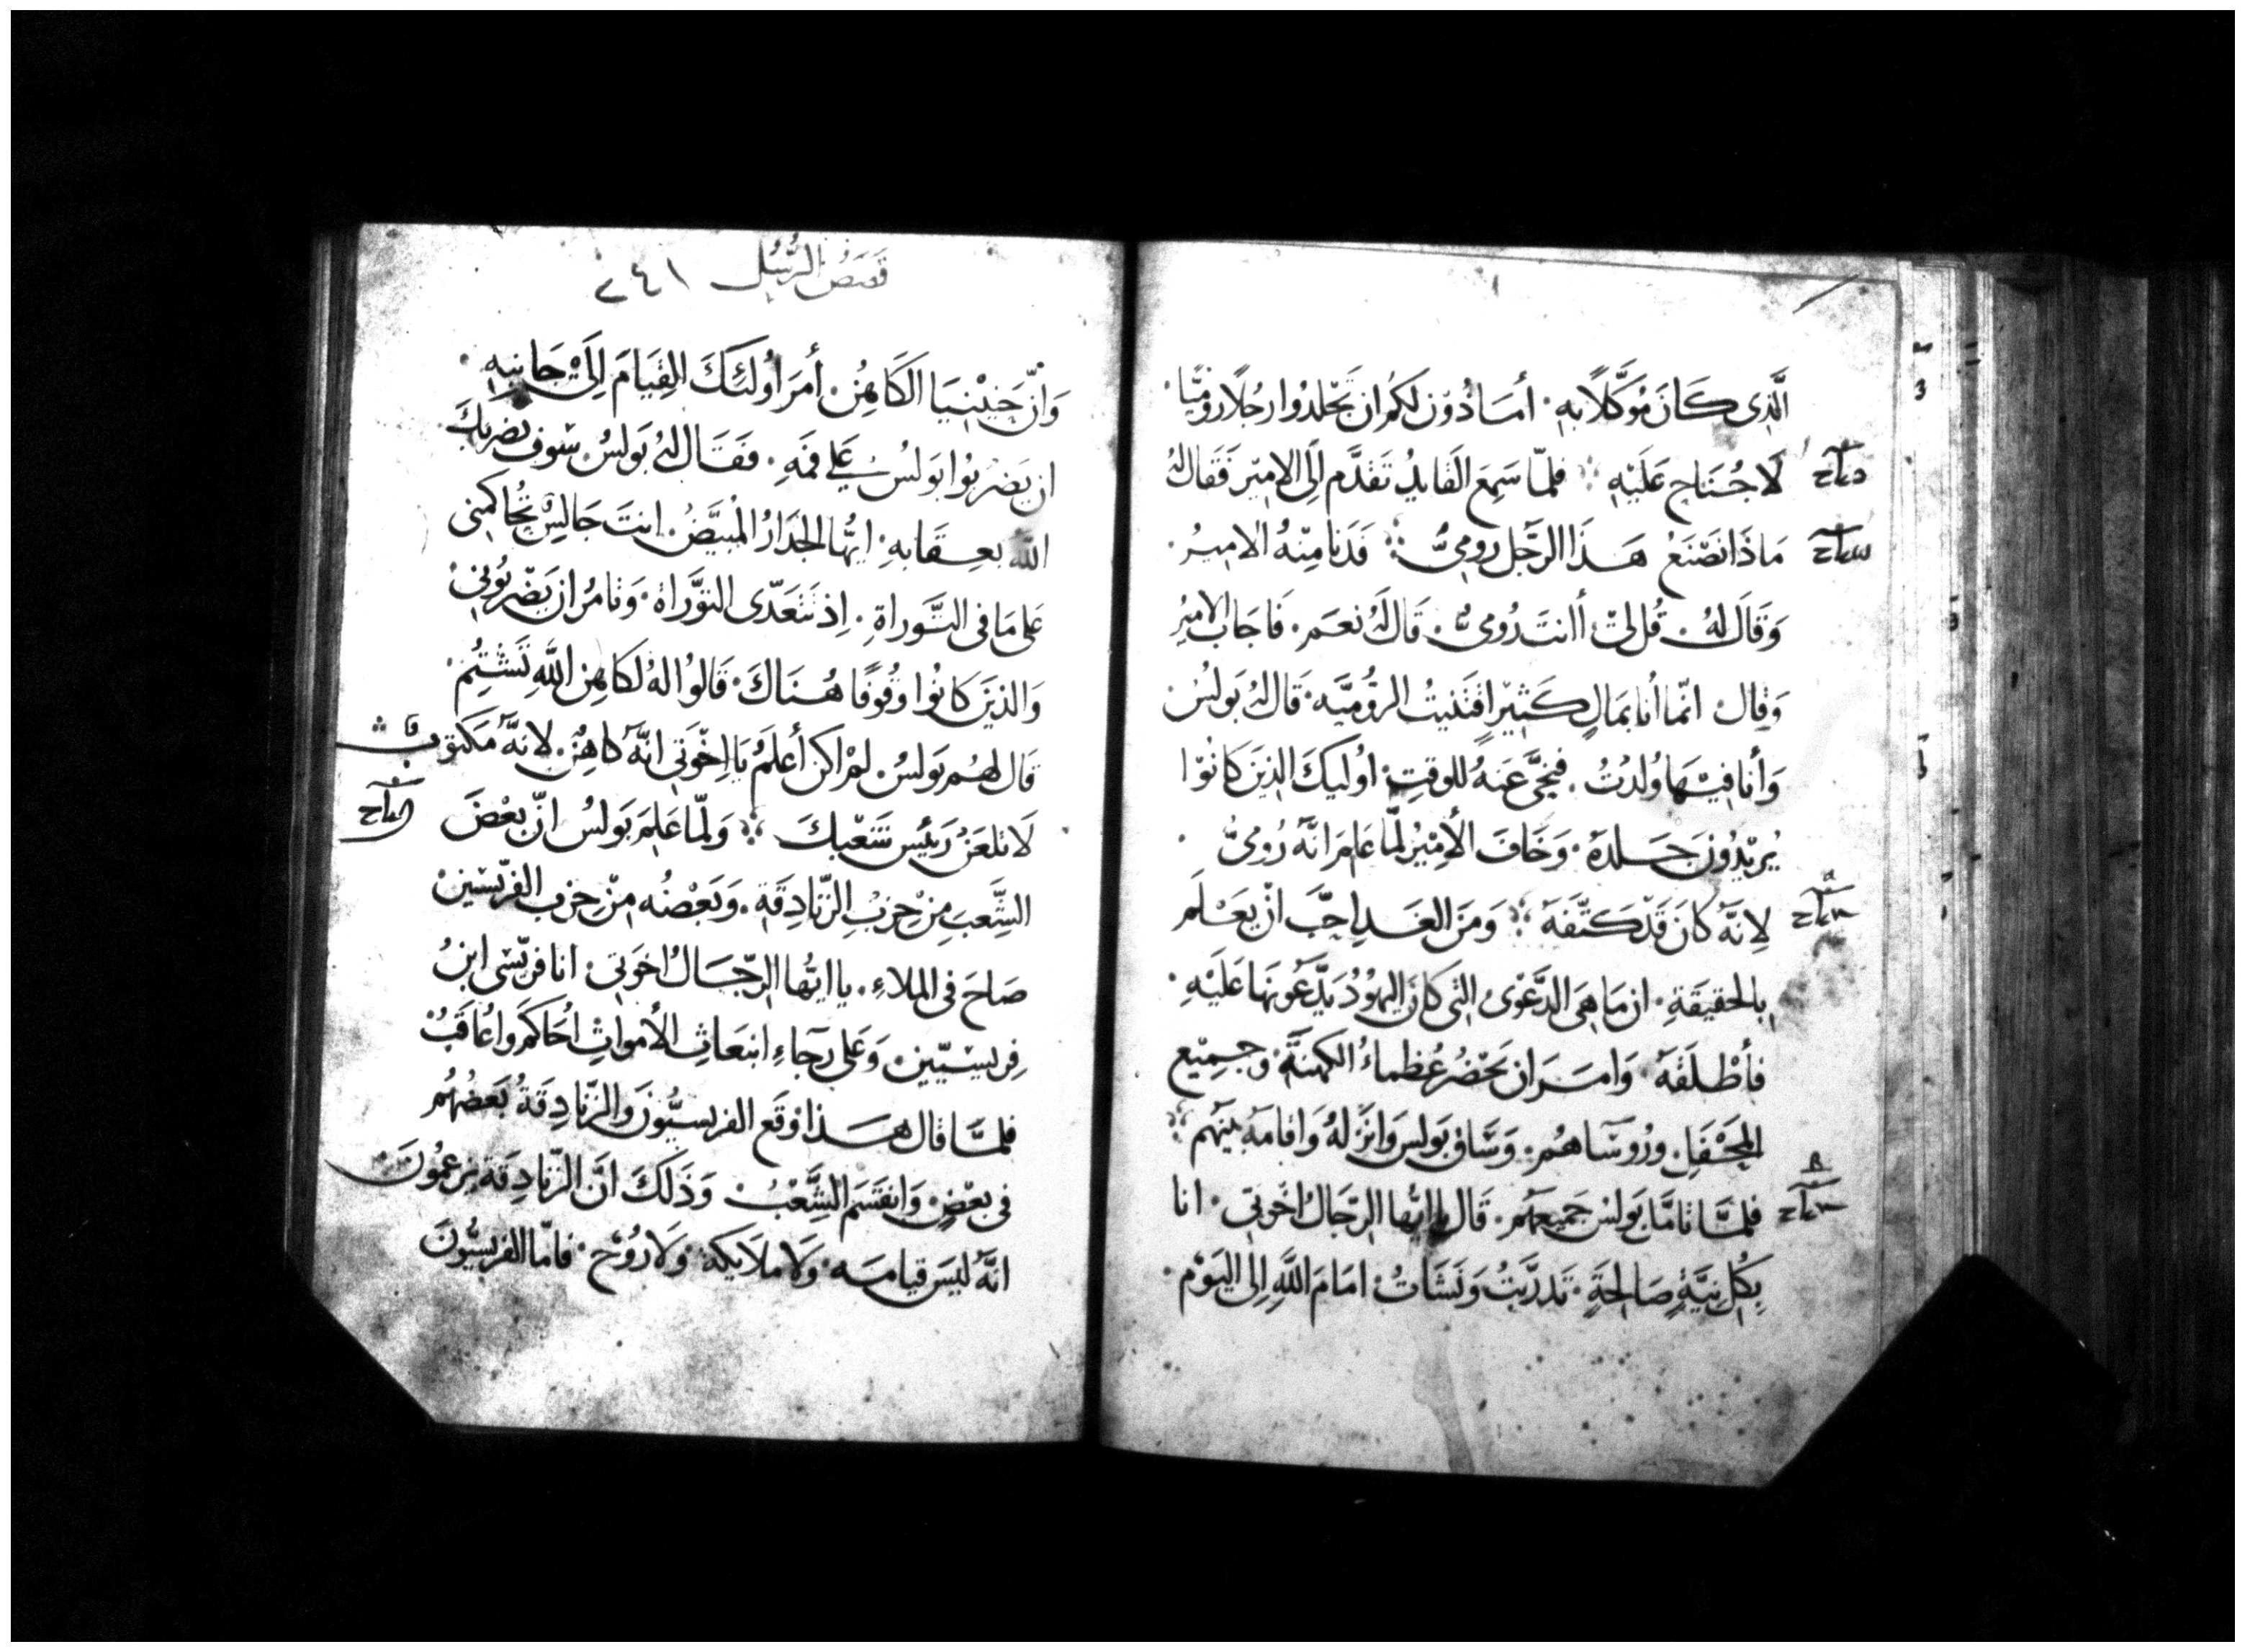 الَّذِى كَانَ مُوَكَّلًا بِهِ ۰ أمَاذُوْن لكُم ان تَجْلدُوا رجُلًا رُومِيًّا ۰
لَا جُنَاح عَلَيْهِ ۰ فلمّا سَمِعَ القَايدُ تَقدَّم إلَى الامِيْر فَقَال لهُ
مَاذَا نَصْنَعُ هَذَا الرَّجُل رُومِىٌّ ۰ فَدَنا مِنْهُ الامِيرُ ۰
وَقَالَ لهُ ۰ قُل لِى أانتَ رُومىٌّ ۰ قَالَ لَهُ نعَم ۰ فَاجَابَ الامِيْر
وَقَال انّما أنا بمَالٍ كَثِيْرٍ اقتَنيتُ الرُّوميَّه ۰ قَال لهُ بَولسُ
وَأنا فِيْهَا وُلدتُ ۰ فنجَّى عَنهُ للوقتِ اوُليكَ الذِينَ كانُوْا
يُريْدُونَ جَلدَهُ ۰ وَخَافَ الأمِيْرُ لمَّا عَلمَ انَّهُ رُومىٌّ ۰
لِانَّهُ كَانَ قَدْ كَتَّفَهُ ۰ وَمنَ الغَدِ احَبَّ انْ يَعْلَم
بالحقيقَةِ ۰ ان مَا هِىَ الدَّعْوَى التِى كَانَ اليهُوْدُ يَدَّعُونهَا عَلَيْهِ ۰
فأطْلَقَهُ ۰ وَامَرَ ان يَحْضُر عُظماءُ الكهنَةِ وجمِيْع
المَحْفَلِ ۰ ورُوسَاهُم ۰ وَسَاق بَولسَ وَانزَلهُ وَاقامَهُ بَيْنَهُم
فلمَّا تامَّا بَولسُ جَميعَهُم ۰ قَال يا ايُّها الرِّجَالُ اخُوتِى ۰ انا
بِكُل نِيَّةٍ صَالحَةٍ ۰ تَدرَّبتُ وَنَشَاتُ امَامَ اللَّهِ الى اليَوْم ۰
قَصَصُ الرُّسُل ٢٤١
وَانّ حَنِيْنيَا الكَاهِنُ أمَرَ أُولئكَ القِيَامَ إلَى جَانِبِهِ ۰
ان يَضْربُوا بَولسُ عَلى فمَهِ ۰ فَقَال لهُ بَولسُ سَوف يضربكَ
اللهُ بعِقَابهِ ۰ ايُّها الجدَارُ المُبيَّضُ ۰ انتَ جَالِسٌ تُحَاكمُنى
عَلى مَا فِى التَّوراةِ ۰ اِذ تَتعَدّى التوَّرَاة ۰ وَتامُر ان يَضْربُونِى
وَالذينَ كانُوا وقُوفًا هُنَاكَ ۰ قَالُوا لهُ لكاهِن اللَّهِ تَشتُم
قَال لهُم بَولسُ ۰ لمْ اكن أعلَمُ يَا اِخْوَتِى انَّهُ كَاهِنٌ ۰ لانهُ مَكتوبٌ
لَا تلعَنْ رَئيس شَعْبكَ ۰ وَلمّا عَلِمَ بَولسُ انّ بَعْضَ
الشَّعبَ مِنْ حِزبِ الزّنادِقَةِ ۰ وَبَعْضُه مِنْ حِزب الفرّيسِين
صَاحَ فى الملاءِ ۰ يا ايُّها الرّجَالُ اخوَتِى ۰ انا فرّيسِى ابنُ
فِريسيّين ۰ وَعَلى رجَاءِ انبعَاثِ الأموَاتِ احُاكَم واعُاقَبُ
فلمَّا قَال هَذا وَقَع الفريسيُّونَ وَالزّنادِقَةُ بَعضُهُم
فى بعْضٍ وَانقسَم الشَّعْبُ وَذَلكَ انَّ الزّنادِقَة يزعمُونَ
انَّهُ ليسَ قيامَه ۰ وَلا ملَايكة ۰ وَلَا رُوْح ۰ فامّا الفريسيُّونَ